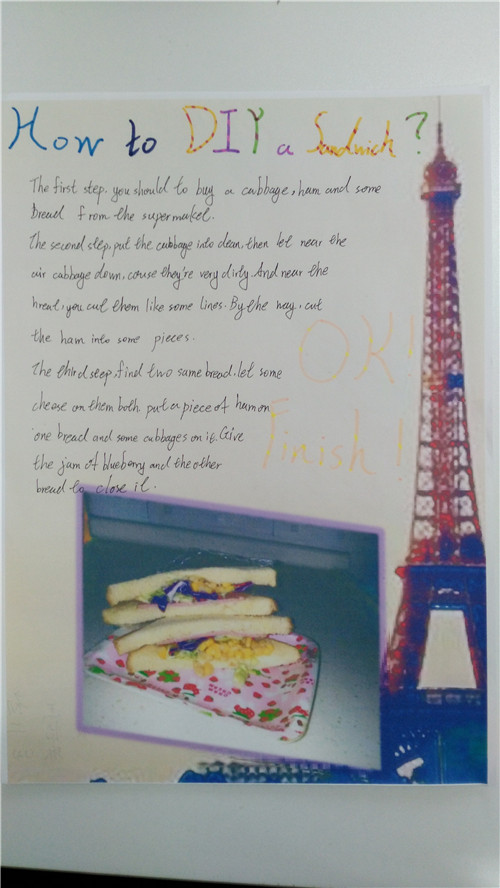 How to DIY a Sandwich?
The first step, you should to buy a cabbage, ham and some
bread from the supermaket.
The second step, put the cabbage into clean, then let near the
air cabbage down, couse they're very dirty. And near the
hreat, you cut them like some lines. By the way, cut
the ham into some pieces.
The third step, find two same bread, let some
cheese on them both. put a piece of ham on
one bread and some cabbages on it. Give
the jam of blueberry and the other
bread to close it.
OK!
Finish!